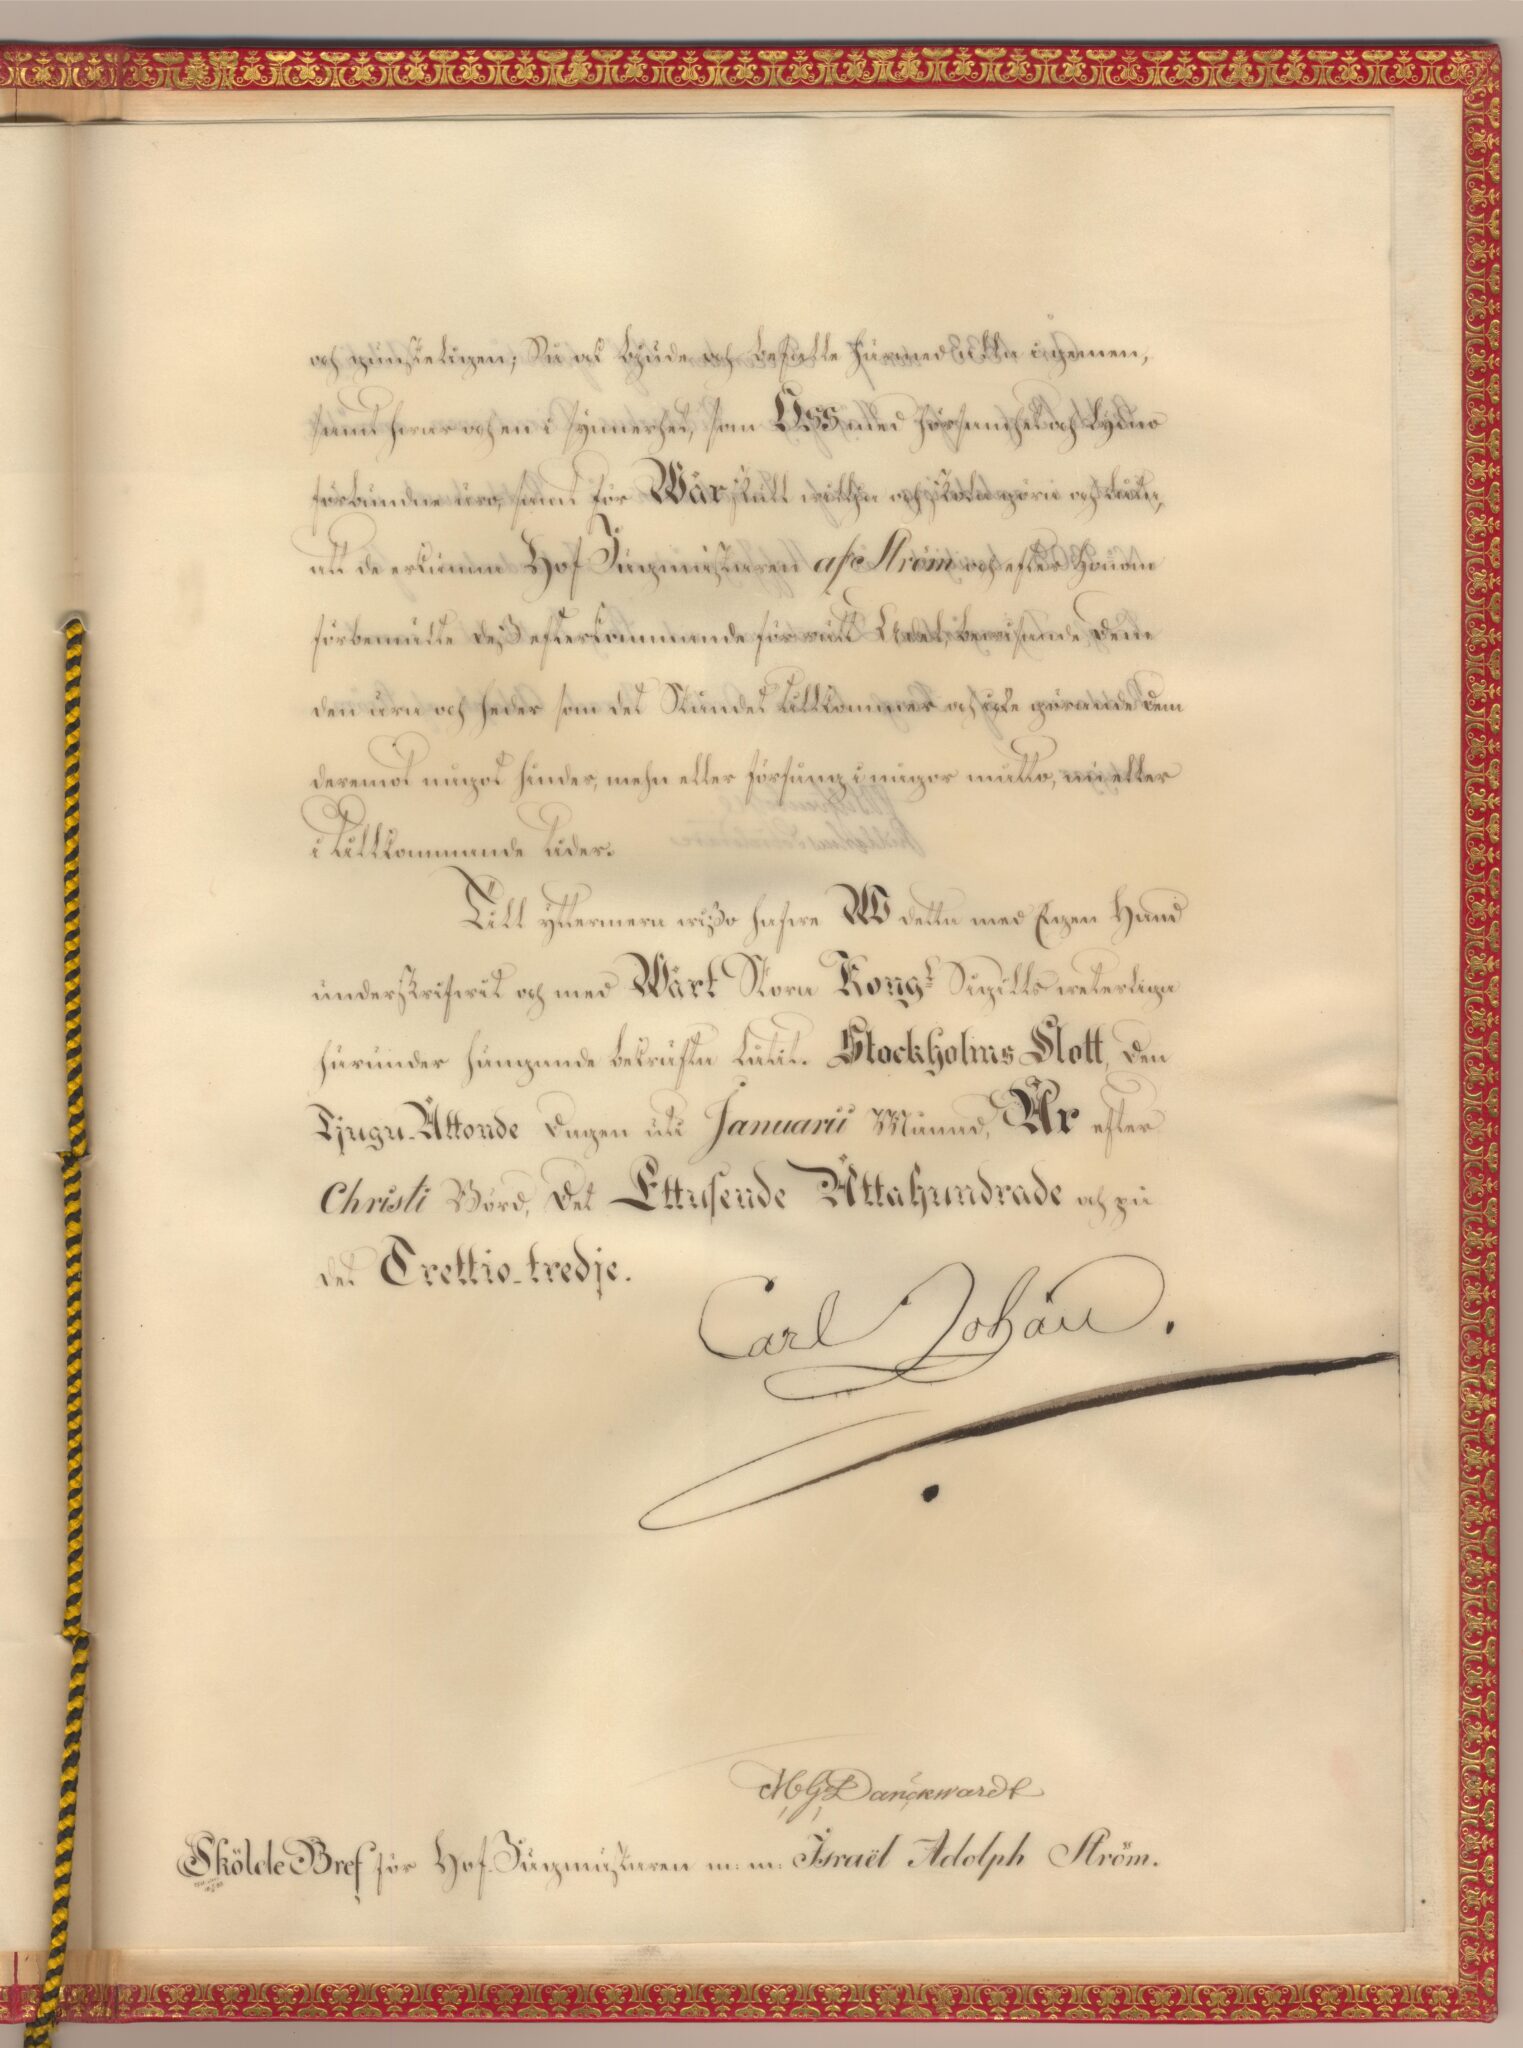 och gunsteligen; Ty at bjude och befalle härmed Alla i gemen,
samt hvar och en i synnerhet, som Oss med hörsamhet och lydno
förbundne äro, samt för Wår skull wilja och skola göra och låta,
att de erkänna Hof Jägmästaren af Ström och efter honom
förbemälte dess efterkommande för rätt Adel, bewisande dem
den äran och heder som det Ståndet tillkommer och icke görande dem
deremot något hinder, mehn eller förfång i någor måtto, nu eller
i tillkommande tider.
Till yttermera wisso hafwe Wi detta med Egen Hand
underskrifwit och med Wårt Stora Kongl. Sigills weterliga
härunder hängande bekräfta låtit. Stockholms Slott, den
Tjugu-Åttonde dagen uti Januarii Månad, År efter
Christi Börd, det Ettusende Åttahundrade och på
det Trettio-tredje.
Carl Johan.
M G Danckwardt
Skölde Bref för Hof-Jägmästaren m: m: Israël Adolph Ström.